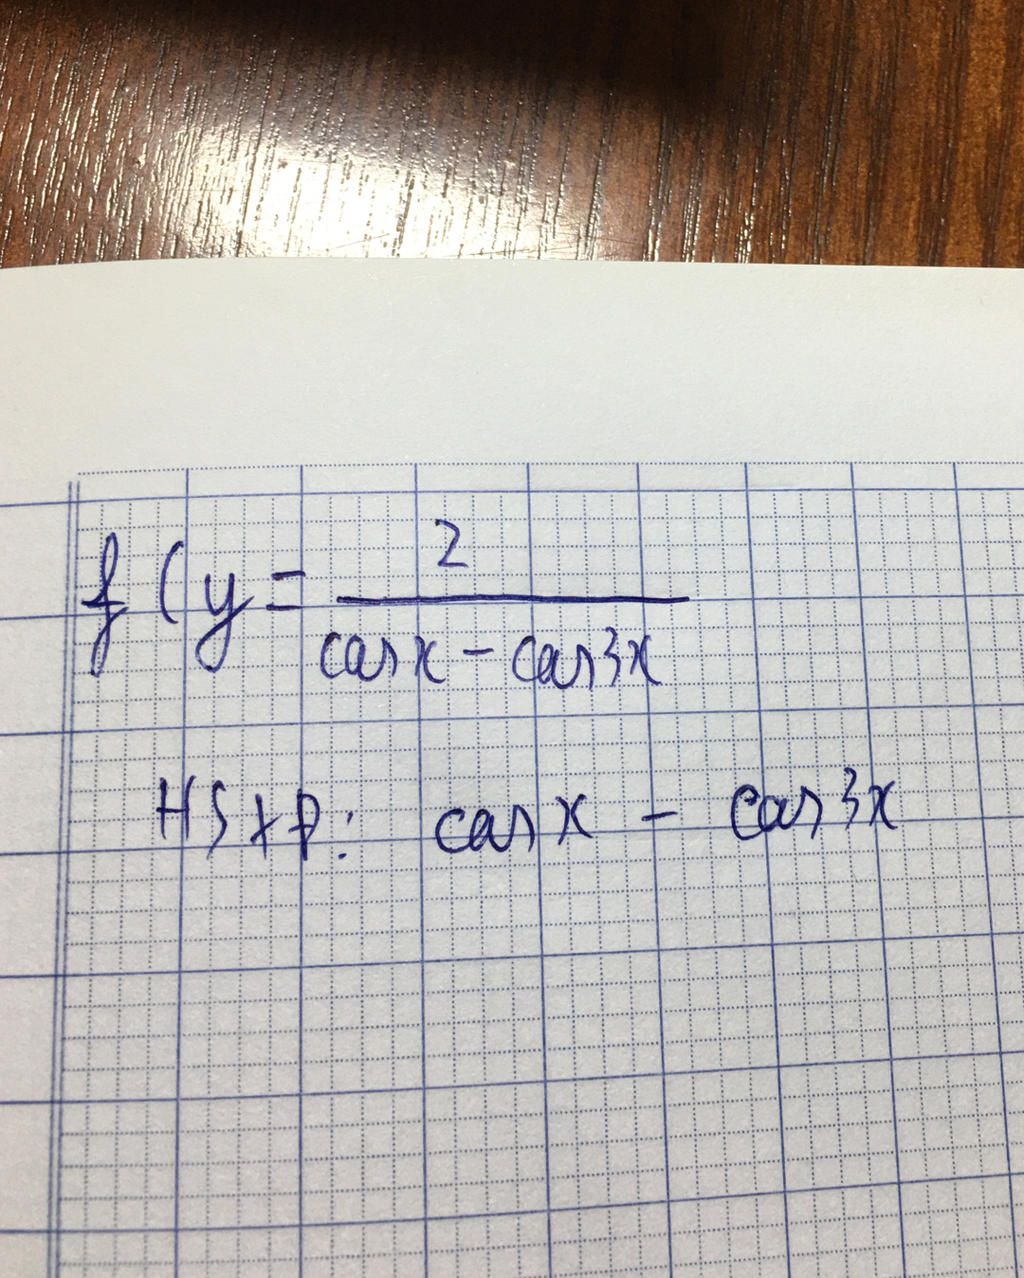 f) y = 2 / (cos x - cos 3x)
HSXĐ: cos x - cos 3x